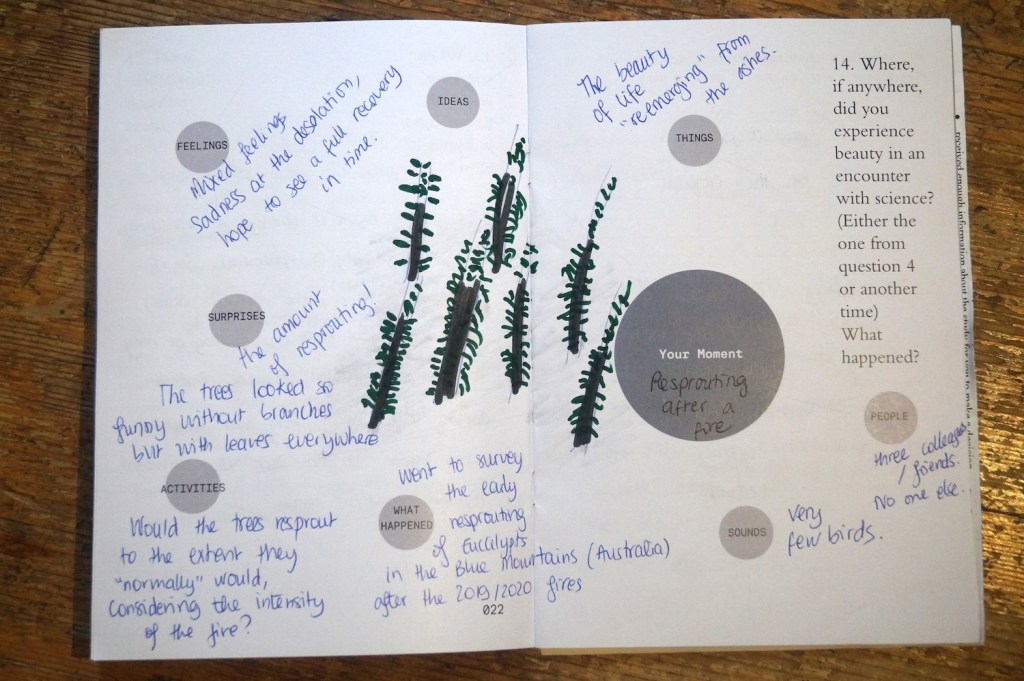 IDEAS
FEELINGS
Mixed feelings
Sadness at the desolation,
hope to see a full recovery
in time.
SURPRISES
the amount
of resprouting!
The trees looked so
funny without branches
but with leaves everywhere
ACTIVITIES
Would the trees resprout
to the extent they
"normally" would,
considering the intensity
of the fire?
WHAT
HAPPENED
Went to survey
the early
resprouting
of Eucalypts
in the Blue Mountains (Australia)
after the 2019/2020 fires
022
The beauty
of life
"reemerging" from
the ashes.
THINGS
14. Where,
if anywhere,
did you
experience
beauty in an
encounter
with science?
(Either the
one from
question 4
or another
time)
What
happened?
Your Moment
Resprouting
after a
fire
PEOPLE
three colleagues
/ friends.
No one else..
SOUNDS
Very
few birds.
received enough information about the study for you to make a decision